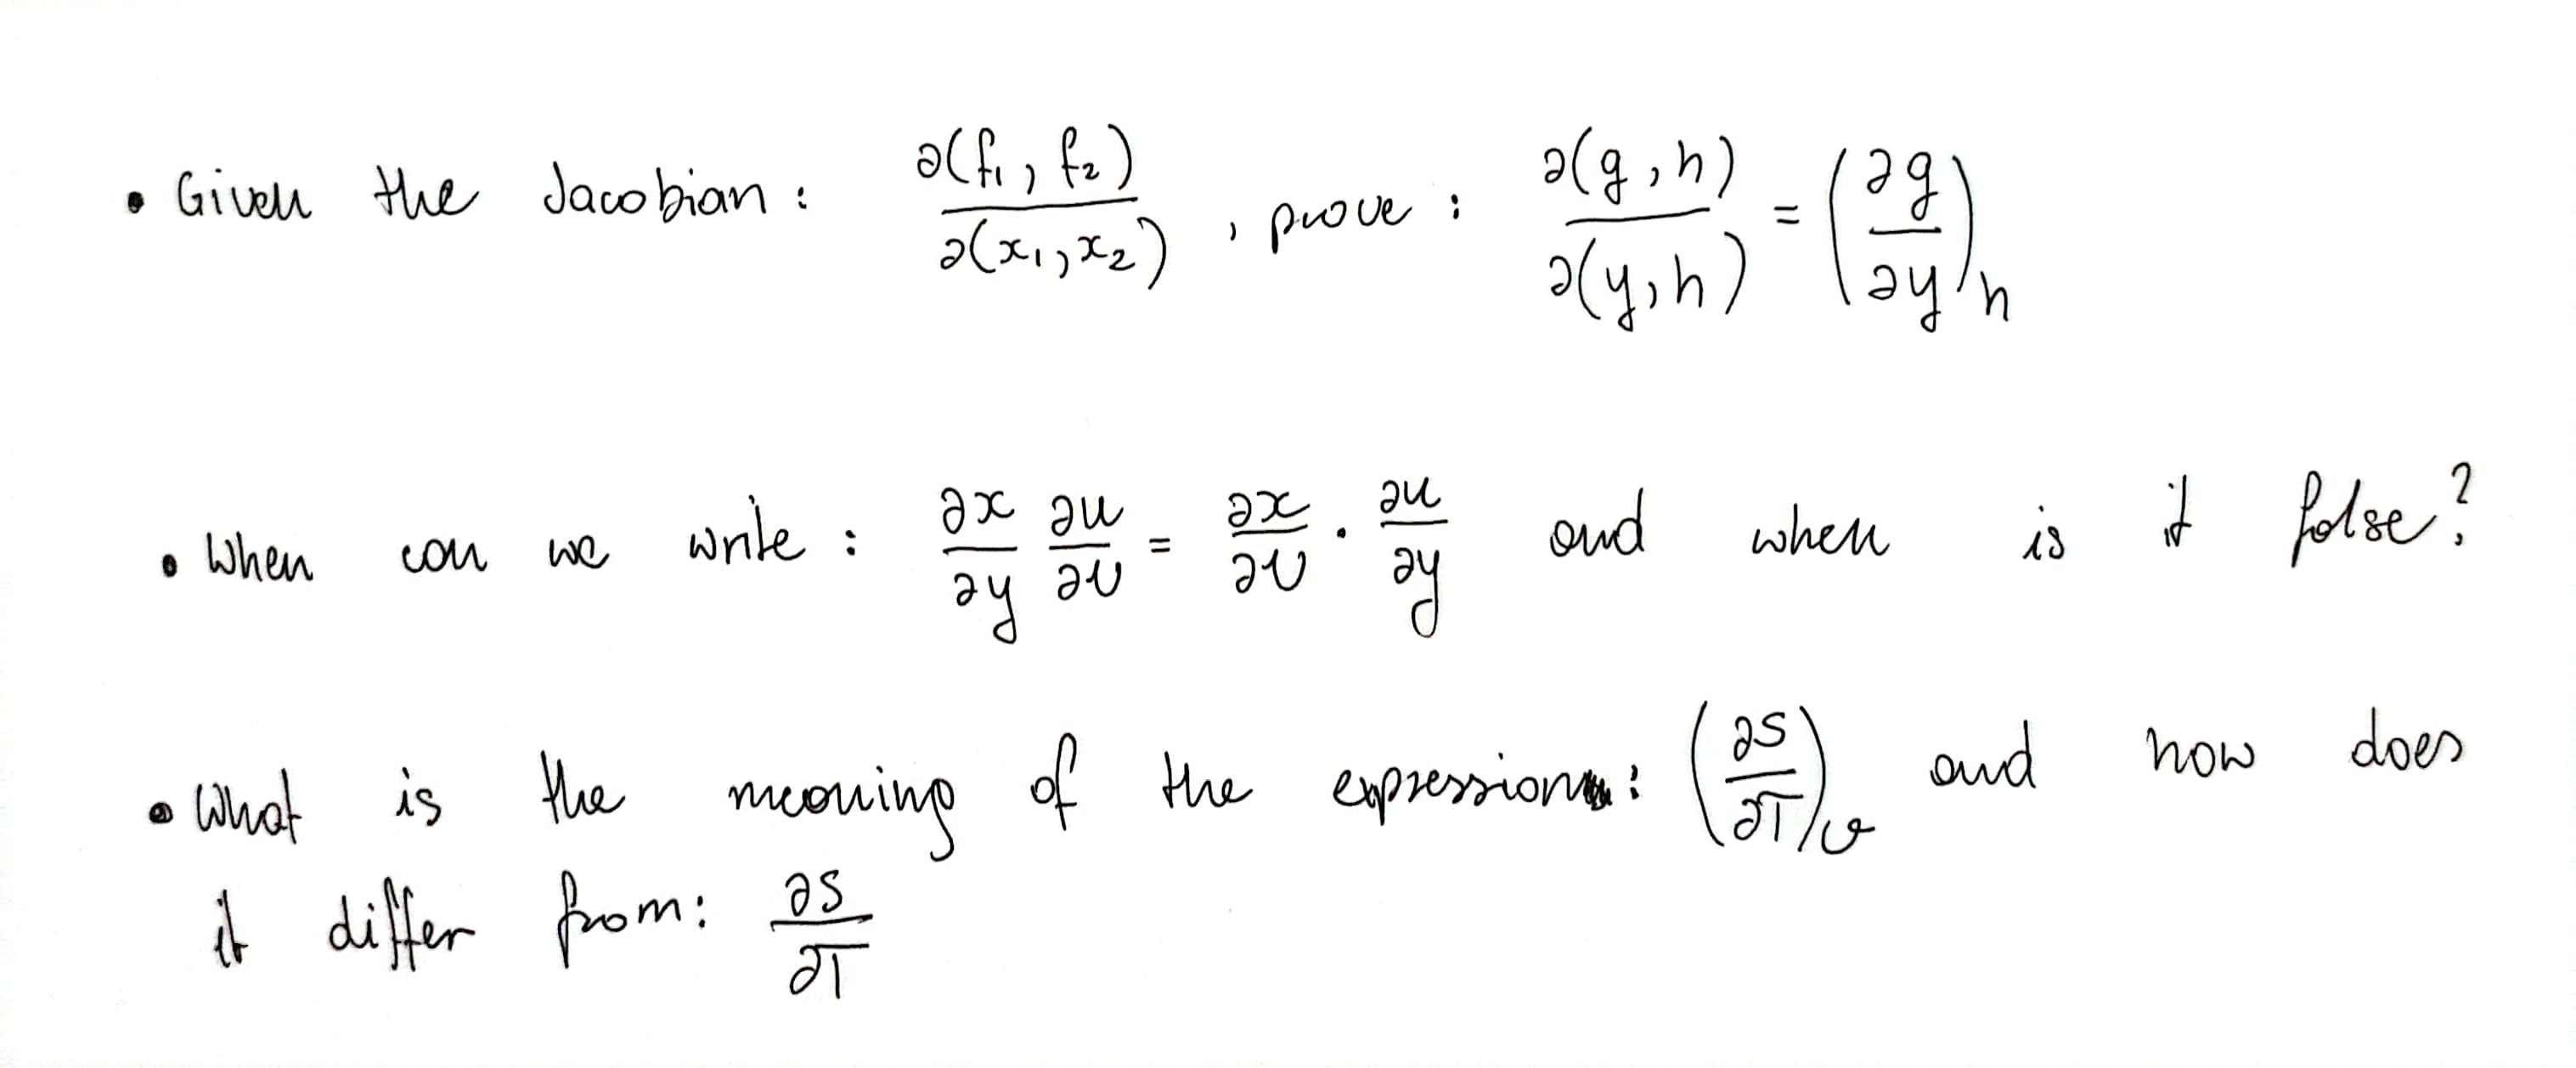 • Given the Jacobian: ∂(f₁, f₂)/∂(x₁, x₂), prove: ∂(g, h)/∂(y, h) = (∂g/∂y)ₕ
• When can we write: ∂x/∂y ∂u/∂v = ∂x/∂v · ∂u/∂y and when is it false?
• What is the meaning of the expression: (∂S/∂T)ᵥ and how does
it differ from: ∂S/∂T